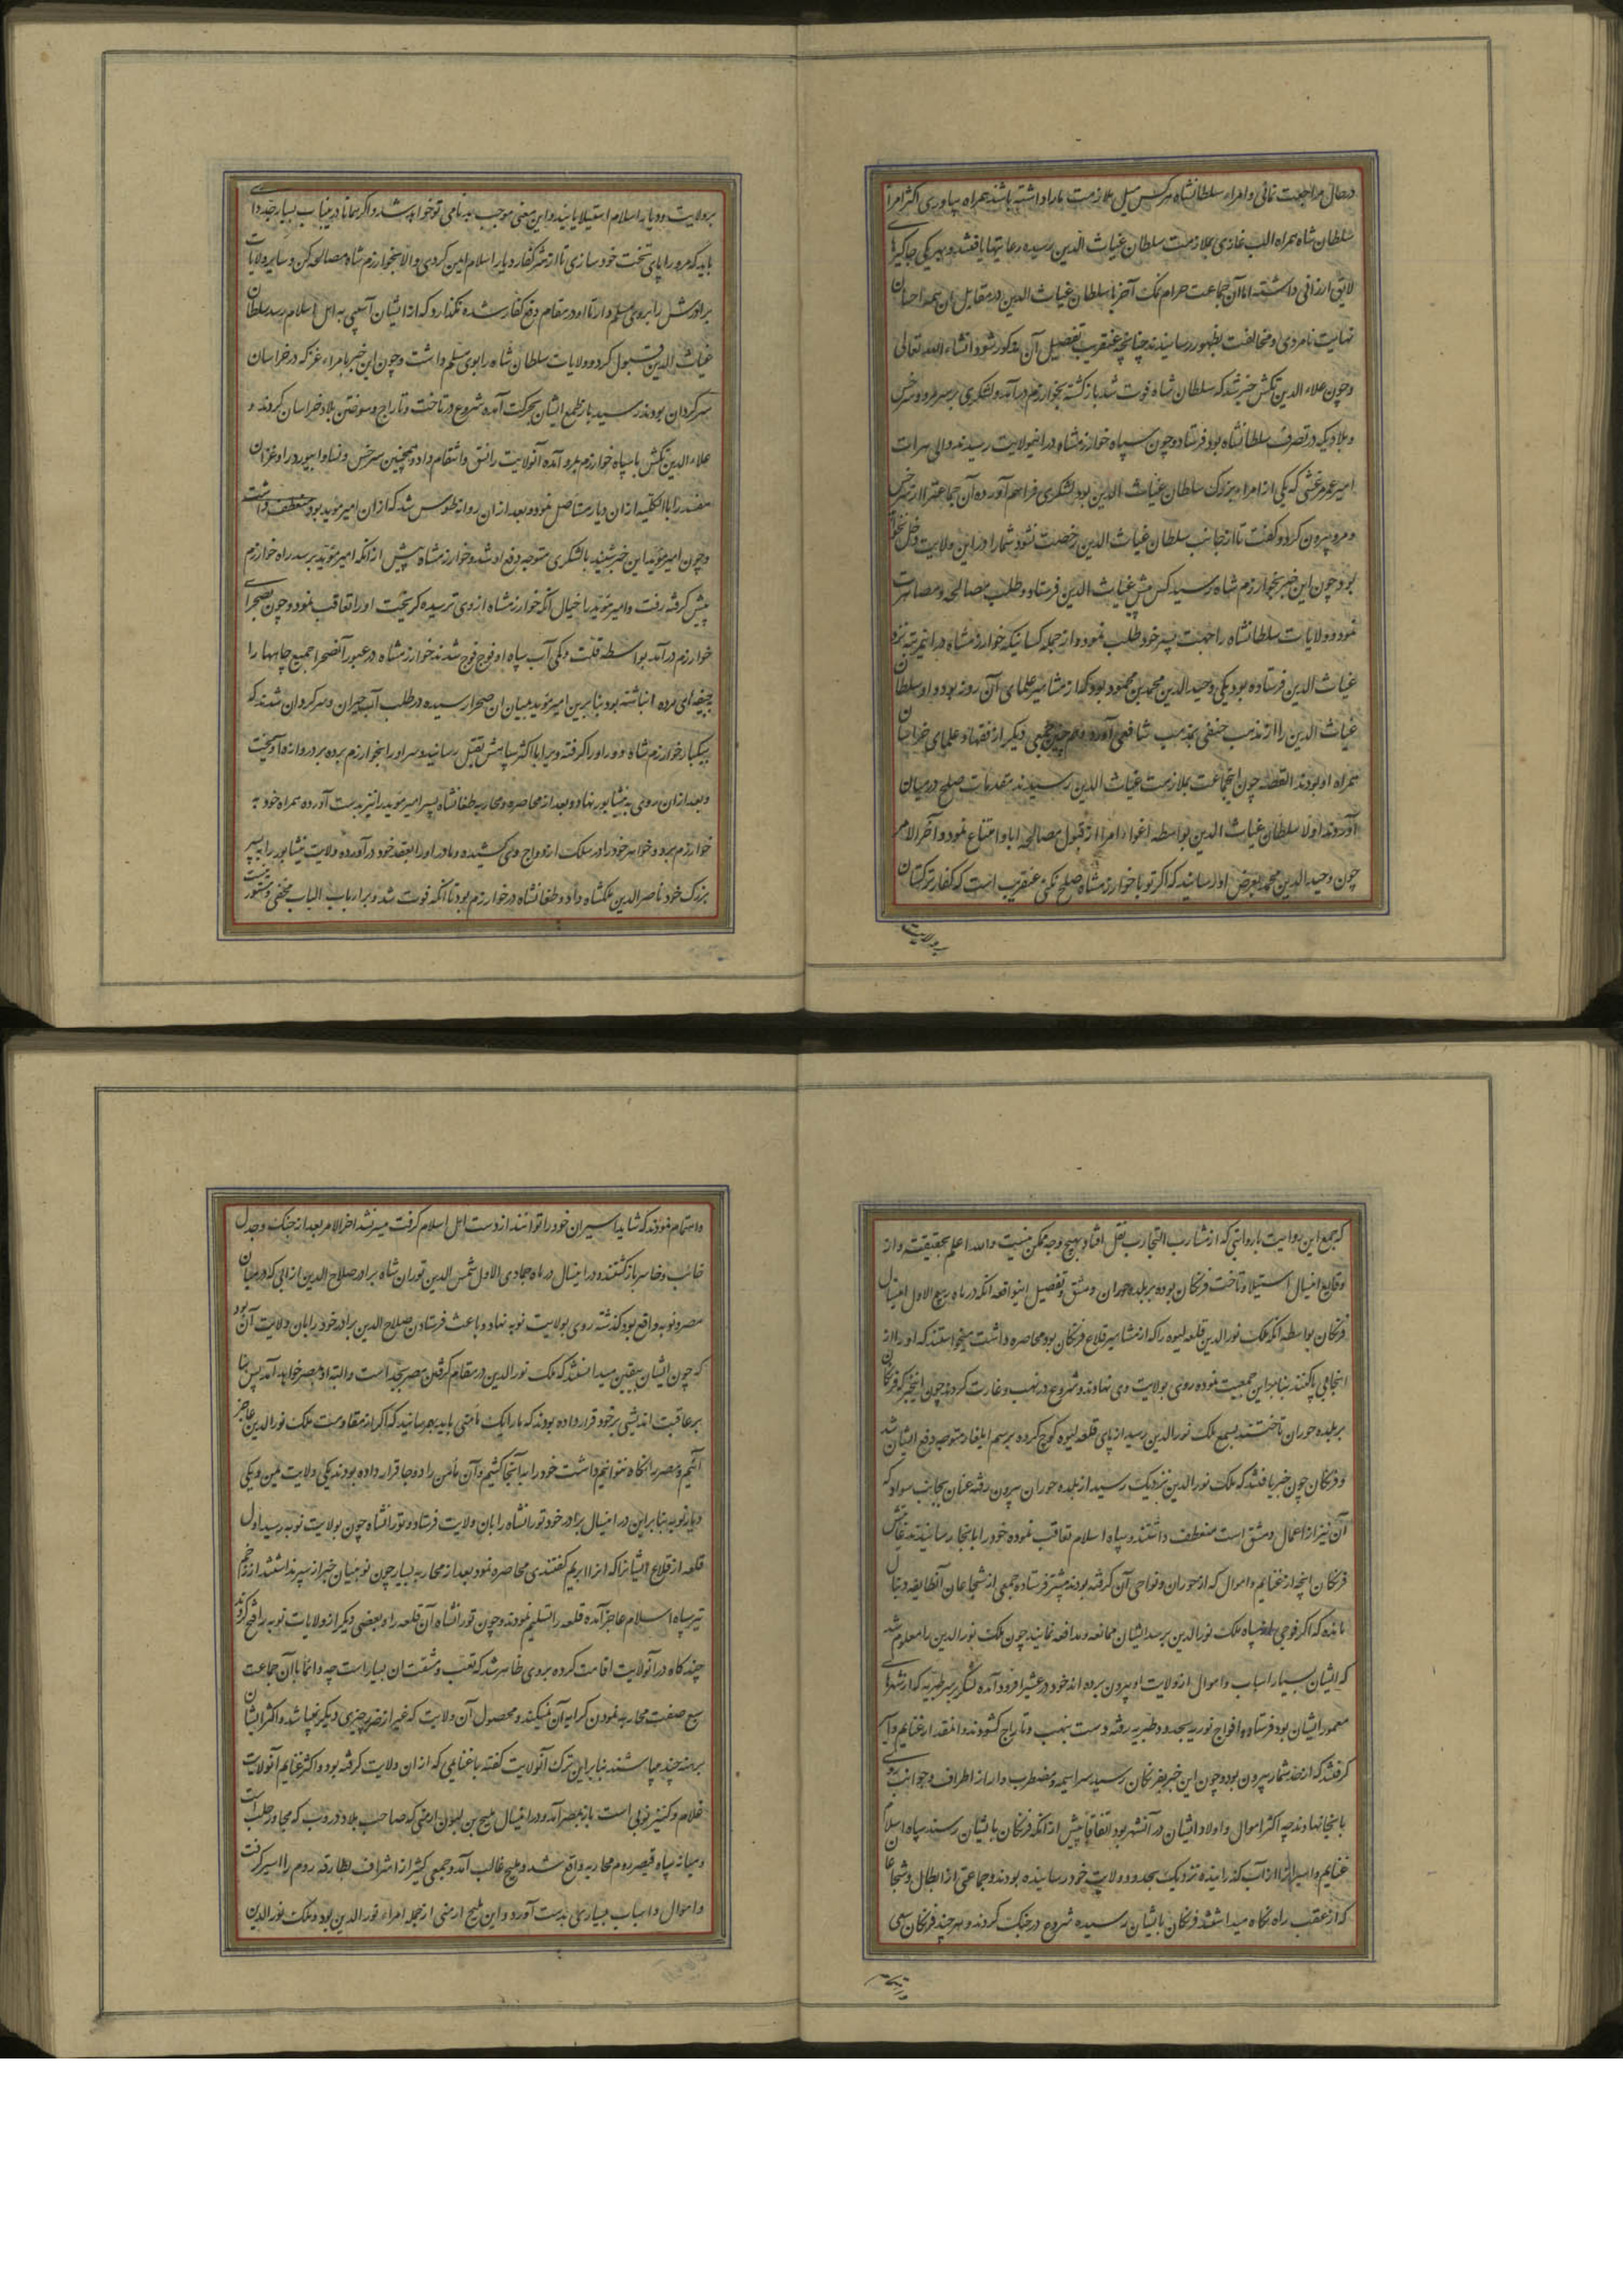 درحال مراجعت نمائی و امراء سلطانشاه هرکس میل ملازمت ما را داشته باشند همراه بیاوری اکثر امرای
سلطان شاه همراه الب غازی بملازمت سلطان غیاث الدین رسیده رعایتها یافتند و بهر یکی جاگیرهای
لایق ارزانی داشته اما آن جماعت حرام نمک آخر با سلطان غیاث الدین در مقابل آن همه احسان
نهایت نامردی و مخالفت بظهور رسانیدند چنانچه عنقریب تفصیل آن مذکور شود انشاء الله تعالی
وچون علاء الدین تکش خبر شد که سلطان شاه فوت شد باز گشته بخوارزم درآمد و لشکری بر سر مرو و سرخس
و بلادیکه در تصرف سلطانشاه بود فرستاد و چون سپاه خوارزمشاه در آنولایت رسیدند والی هرات
امیر عمر مرغنی که یکی از امراء بزرگ سلطان غیاث الدین بود لشکری فراهم آورده آن جماعت را از سرخس
و مرو بیرون کرد و گفت تا از جانب سلطان غیاث الدین رخصت نشود شما را در این ولایت دخل نخواهد
بود چون این خبر بخوارزم شاه رسید کس پیش غیاث الدین فرستاد و طلب مصالحه و مصاهرت
نمود و ولایات سلطانشاه را جهت پسر خود طلب نمود و از جمله کسانیکه خوارزمشاه در اینمرتبه نزد
غیاث الدین فرستاده بود یکی وحید الدین محمد بن محمود بود که از مشاهیر علمای آن روز بود و او سلطان
غیاث الدین را از مذهب حنفی بمذهب شافعی آورد و همچنین جمعی دیگر از فقها و علمای خراسان
همراه او بودند القصه چون اینجماعت بملازمت غیاث الدین رسیدند مقدمات صلح درمیان
آوردند اولا سلطان غیاث الدین بواسطه اغواء امرا از قبول مصالحه ابا و امتناع نمود و آخر الامر
چون وحید الدین محمد بعرض او رسانید که اگر تو با خوارزمشاه صلح نکنی عنقریب است که کفار ترکستان
بر ولایت
بر ولایت و دیار اسلام استیلا یابند و این معنی موجب بدنامی تو خواهد شد و اگر همانا در بنیاب بسیار جد داری
باید که مرو را پای تخت خود سازی تا از شر کفار دیار اسلام ایمن گردی و الا بخوارزم شاه مصالحه کن و سایر ولایات
برادرش را بروی مسلم دار تا او در مقام دفع کفار شده نگذارد که از ایشان آسیبی به اهل اسلام رسد سلطان
غیاث الدین قبول کرد و ولایات سلطان شاه را بوی مسلم داشت و چون این خبر بامراء غز که در خراسان
سرگردان بودند رسید باز طمع ایشان بحرکت آمده شروع در تاخت و تاراج و سوختن بلاد خراسان کردند و
علاء الدین تکش با سپاه خوارزم بمرو آمده آنولایت را نسق و انتقام داد و همچنین سرخس و نسا و ابیورد را و غزان
مفسد را بالکلیه از ان دیار مستاصل نمود و بعد از ان روانه طوس شد که از ان امیر موید بود منعطف داشت
وچون امیر موید این خبر شنید با لشکری متوجه دفع او شد و خوارزمشاه پیش از آنکه امیر موید برسد راه خوارزم
پیش گرفته رفت و امیر موید را خیال آنکه خوارزمشاه از وی ترسیده گریخت او را تعاقب نمود و چون بصحرای
خوارزم درآمد بواسطه قلت و کمی آب سپاه او فوج فوج شدند خوارزمشاه در عبور آنصحرا جمیع چاهها را
بجیفه‌ای مرده انباشته بود بنابرین امیر موید بمیان ان صحرا رسیده در طلب آب حیران و سرگردان شدند که
بیکبار خوارزم شاه دور او را گرفته ویرا با اکثر سپاهش بقتل رسانید و سر او را بخوارزم برده بر دروازها آویخت
و بعد از ان روی به نیشابور نهاد و بعد از محاصره و محاربه طغانشاه پسر امیر موید را نیز بدست آورده همراه خود به
خوارزم برد و خواهر خود را در سلک ازدواج وی کشیده و مادر او را بعقد خود درآورده ولایت نیشابور را به پسر
بزرگ خود ناصر الدین ملکشاه داد و طغانشاه در خوارزم بود تا آنکه فوت شد و بر ارباب الباب مخفی و مستور نیست
که جمع این روایت با روایتی که از مشارب التجارب نقل افتاد بهیچ وجه ممکن نیست والله اعلم بحقیقته و از
وقایع اینسال استیلا و تاخت فرنگان بوده بر بلده حوران و دمشق و تفصیل اینواقعه آنکه در ماه ربیع الاول اینسال
فرنگان بواسطه آنکه ملک نور الدین قلعه لیوه را که از مشاهیر قلاع فرنگان بود محاصره داشت میخواستند که او را از
انجا بی پا کنند بنابراین جمعیت نموده روی بولایت وی نهادند و شروع در نهب و غارت کردند چون اینخبر که فرنگان
بر بلده حوران تاختند بسمع ملک نور الدین رسید از پای قلعه لیوه کوچ کرده برسم ایلغار متوجه دفع ایشان شد
و فرنگان چون خبر یافتند که ملک نور الدین نزدیک رسید از بلده حوران بیرون رفته عنان بجانب سواد که
آن نیز از اعمال دمشق است منعطف داشتند و سپاه اسلام تعاقب نموده خود را بانجا رسانیدند
فرنگان انچه از غنایم و اموال که از حوران و نواحی آن گرفته بودند پیشتر فرستاده جمعی از شجاعان آنطایفه دنبال
مانده که اگر فوجی از سپاه ملک نور الدین برسد ایشان ممانعه و مدافعه نمایند چون ملک نور الدین را معلوم شد
که ایشان بسیار اسباب و اموال از ولایت او بیرون برده اند خود در عشیرا فرود آمده لشکر بر سر طبریه که از شهرهای
معمور ایشان بود فرستاد و افواج نوریه بحدود طبریه رفته دست بنهب و تاراج گشودند و انقدر از غنایم و اسیر
گرفتند که از حد شمار بیرون بود و چون این خبر بفرنگان رسید سراسیمه و مضطرب وار از اطراف و جوانب روی
بانجا نهادند چه اکثر اموال و اولاد ایشان در آنشهر بود اتفاقا پیش از آنکه فرنگان بایشان رسند سپاه اسلام
غنایم و اسیرانرا از آب گذرانیده نزدیک بحدود ولایت خود رسانیده بودند و جماعتی از ابطال و شجاعان
که از عقب راه نگاه میداشتند فرنگان بایشان رسیده شروع در جنگ کردند و هر چند فرنگان سعی
واهتمام نمودند که شاید اسیران خود را توانند از دست اهل اسلام گرفت میسر نشد اخر الامر بعد از جنگ و جدل
خائب و خاسر باز گشتند و در اینسال در ماه جمادی الاول شمس الدین توران شاه برادر صلاح الدین از ابی که درمیان
مصر و نوبه واقع بود گذشته روی بولایت نوبه نهاد و باعث فرستادن صلاح الدین برادر خود را بان ولایت آن بود
که چون ایشان بیقین میدانستند که ملک نور الدین در مقام گرفتن مصر بجد است و البته او بمصر خواهد آمد پس بنا
بر عاقبت اندیشی بر خود قرار داده بودند که ما را یک مأمنی باید بهم رسانید که اگر از مقاومت ملک نور الدین عاجز
آئیم و مصر را نگاه نتوانیم داشت خود را به آنجا کشیم و آن مأمن را دو جا قرار داده بودند یکی ولایت یمن و یکی
دیار نوبه بنابراین در اینسال برادر خود تورانشاه را بان ولایت فرستاد و تورانشاه چون بولایت نوبه رسید اول
قلعه از قلاع ایشانرا که انرا ابریم گفتندی محاصره نمود بعد از محاربه بسیار چون نوبیان خبر از سپر نداشتند از زخم
تیر سپاه اسلام عاجز آمده قلعه را تسلیم نمودند و چون تورانشاه آن قلعه را و بعضی دیگر از ولایات نوبه را فتح کردند
چند گاه در آنولایت اقامت کرده بروی ظاهر شد که تعب و مشقت ان بسیار است چه دائما با آن جماعت
سبع صفت محاربه نمودن کرایه آن نمیکند و محصول آن ولایت که غیر از ذرت چیزی دیگر نمیباشد و اکثر ایشان
برهنه چند میباشند بنابراین ترک آنولایت گفته با غنایمی که از ان ولایت گرفته بود و اکثر غنایم آنولایت
غلام و کنیز نوبی است باز بمصر آمد و در اینسال ملیح بن لیون ارمنی که صاحب بلاد دروب که مجاور حلب است
ومیانه سپاه قیصر روم محاربه واقع شد و ملیح غالب آمد و جمعی کثیر از اشراف بطارقه روم را اسیر گرفت
و اموال و اسباب بسیاری بدست آورد و این ملیح ارمنی از جمله امراء نور الدین بود و ملک نور الدین